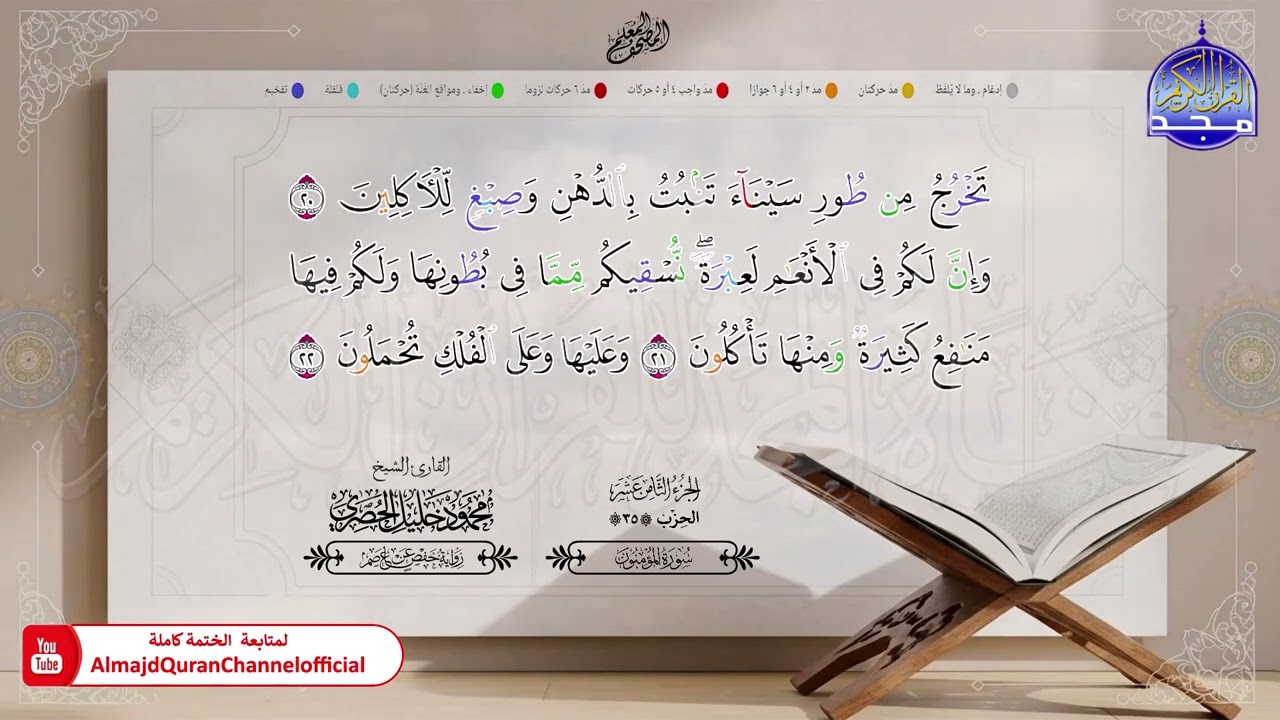 المصحف المعلم
القرآن الكريم
مجد
إدغام ، وما لا يُلفَظ
مد حركتان
مد ٢ أو ٤ أو ٦ جوازا
مد واجب ٤ أو ٥ حركات
مد ٦ حركات لزوما
إخفاء ، ومواقع الغُنَّة (حركتان)
قلقلة
تفخيم
تَخْرُجُ مِن طُورِ سَيْنَآءَ تَنۢبُتُ بِٱلدُّهْنِ وَصِبْغٍ لِّلْأَكِلِينَ ٢٠
وَإِنَّ لَكُمْ فِى ٱلْأَنْعَٰمِ لَعِبْرَةً ۖ نُّسْقِيكُم مِّمَّا فِى بُطُونِهَا وَلَكُمْ فِيهَا
مَنَٰفِعُ كَثِيرَةٌ وَمِنْهَا تَأْكُلُونَ ٢١ وَعَلَيْهَا وَعَلَى ٱلْفُلْكِ تُحْمَلُونَ ٢٢
الجزء الثامن عشر
الحزب ٣٥
سورة المؤمنون
القارئ الشيخ
محمود خليل الحصري
رواية حفص عن عاصم
لمتابعة الختمة كاملة
You
Tube
AlmajdQuranChannelofficial